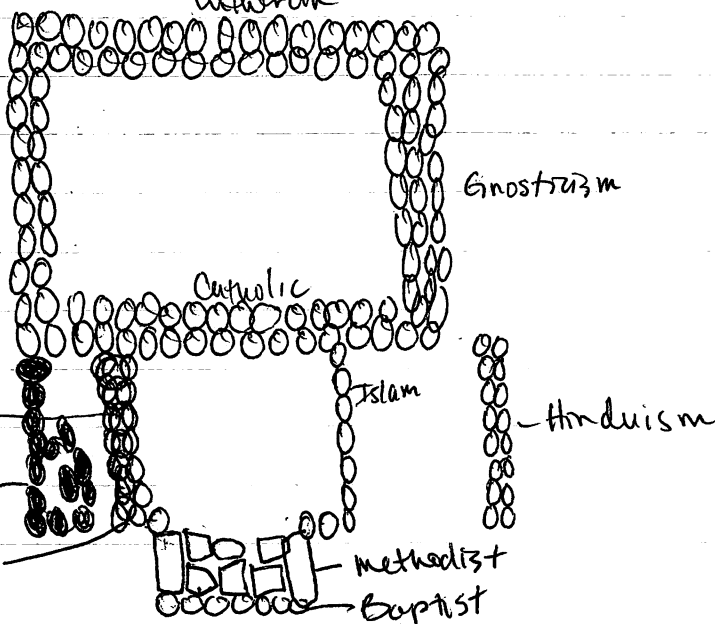 Gnosticism
Catholic
Islam
Hinduism
methodist
Baptist